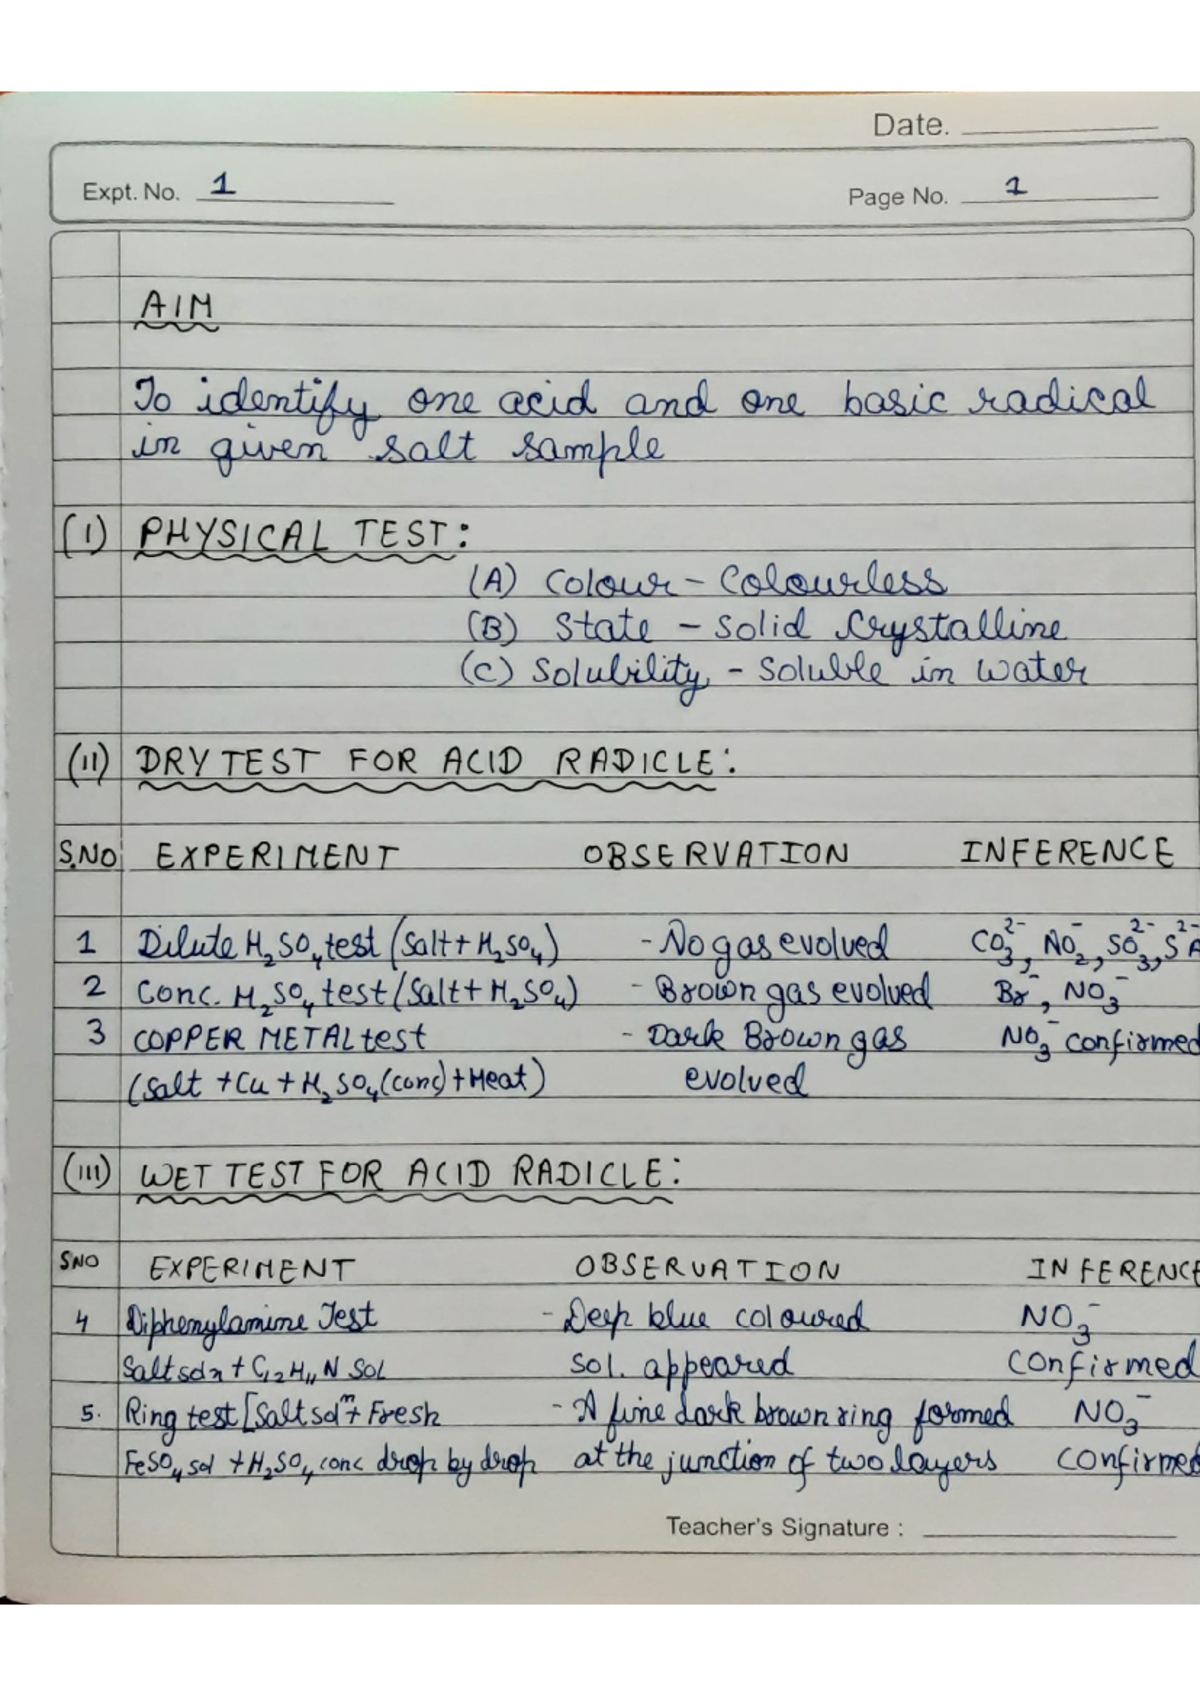 Date.
Expt. No. 1
Page No. 1
AIM
To identify one acid and one basic radical
in given salt sample
(I) PHYSICAL TEST:
(A) Colour - Colourless
(B) State - Solid Crystalline
(C) Solubility - Soluble in water
(II) DRY TEST FOR ACID RADICLE:
S.NO EXPERIMENT OBSERVATION INFERENCE
1 Dilute H₂SO₄ test (Salt + H₂SO₄) - No gas evolved CO₃²⁻, NO₂⁻, SO₃²⁻, S²⁻ A
2 Conc. H₂SO₄ test (Salt + H₂SO₄) - Brown gas evolved Br⁻, NO₃⁻
3 COPPER METAL test - Dark Brown gas NO₃⁻ confirmed
(Salt + Cu + H₂SO₄(conc) + Heat) evolved
(III) WET TEST FOR ACID RADICLE:
SNO EXPERIMENT OBSERVATION INFERENCE
4 Diphenylamine Test - Deep blue coloured NO₃⁻
Salt soln + C₁₂H₁₁N Sol sol. appeared confirmed
5. Ring test [Salt solⁿ + Fresh - A fine dark brown ring formed NO₃⁻
FeSO₄ sol + H₂SO₄ conc drop by drop at the junction of two layers confirmed
Teacher's Signature :